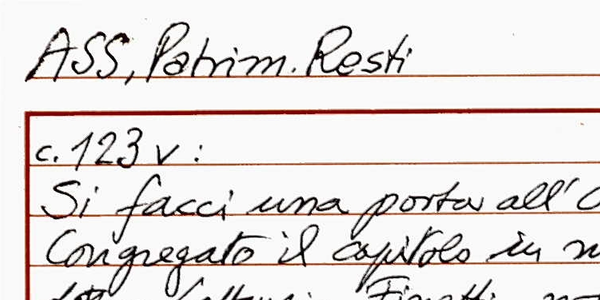 ASS, Patrim. Resti
c. 123 v :
Si facci una porta all'
Congregato il capitolo in